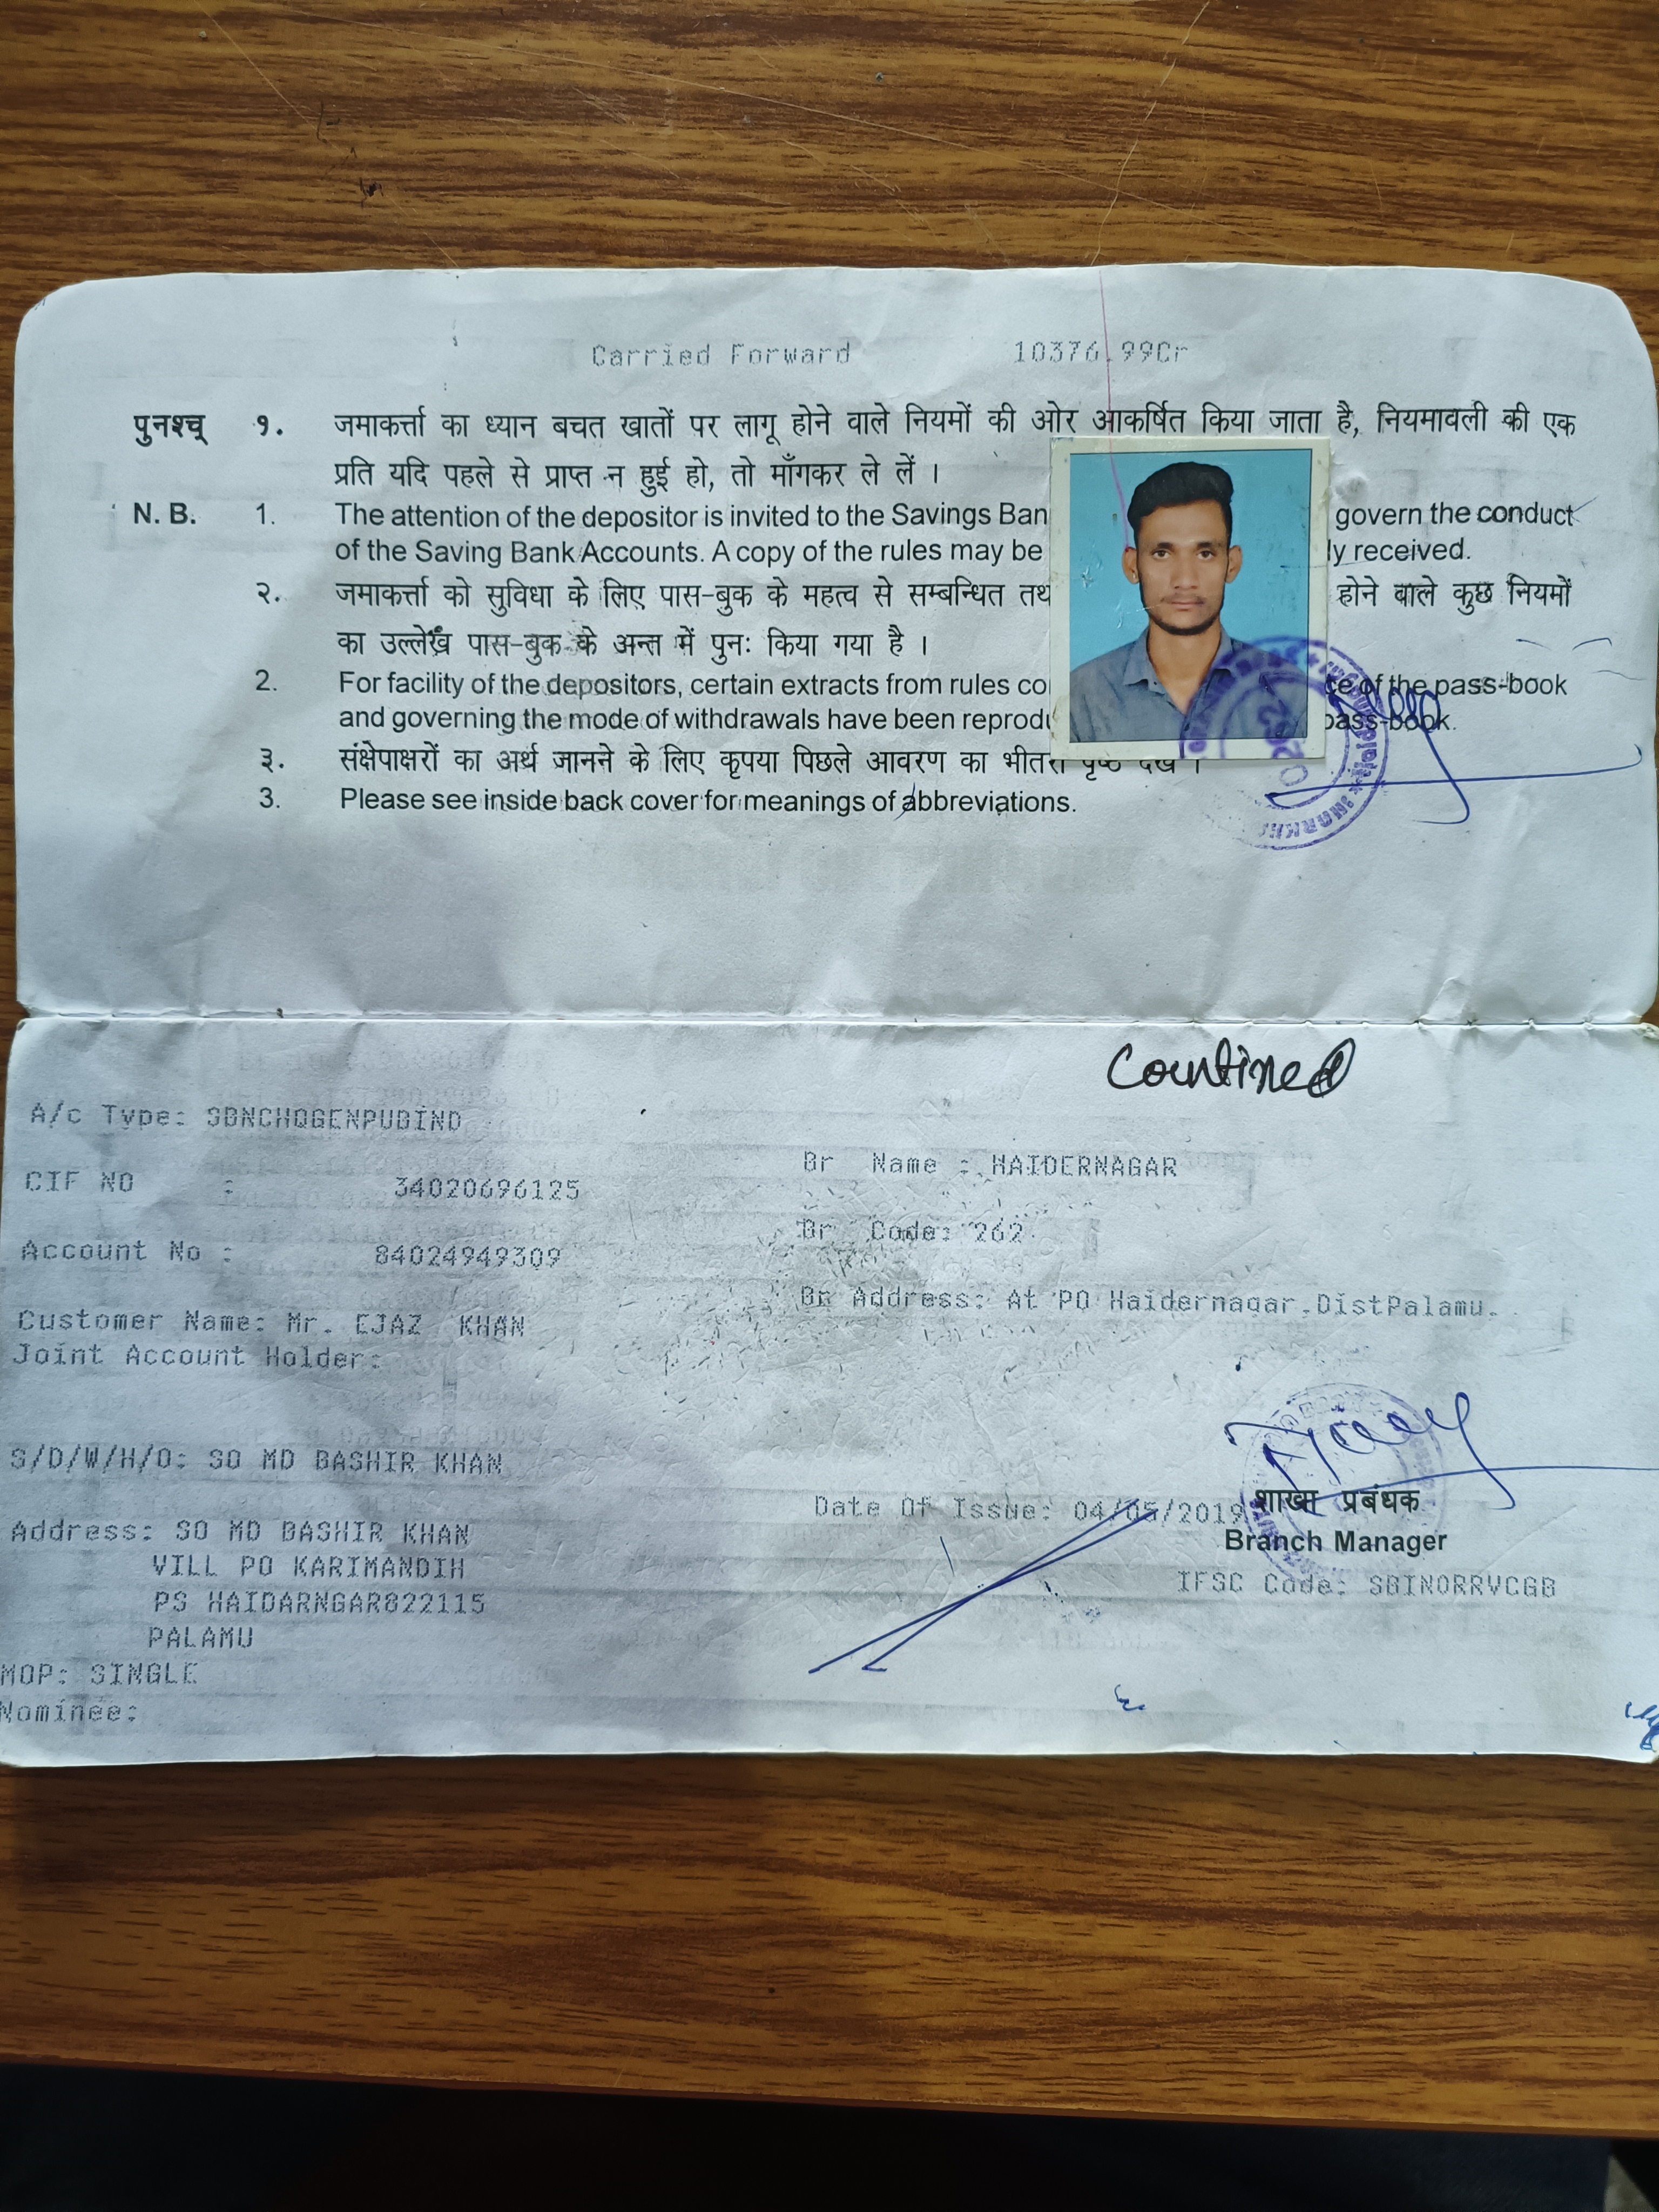 Carried Forward 10376.99Cr
पुनश्च् १. जमाकर्त्ता का ध्यान बचत खातों पर लागू होने वाले नियमों की ओर आकर्षित किया जाता है, नियमावली की एक
प्रति यदि पहले से प्राप्त न हुई हो, तो माँगकर ले लें ।
N. B. 1. The attention of the depositor is invited to the Savings Ban govern the conduct
of the Saving Bank Accounts. A copy of the rules may be ly received.
२. जमाकर्त्ता को सुविधा के लिए पास-बुक के महत्व से सम्बन्धित तथ होने वाले कुछ नियमों
का उल्लेख पास-बुक के अन्त में पुनः किया गया है ।
2. For facility of the depositors, certain extracts from rules co ce of the pass-book
and governing the mode of withdrawals have been reprodu pass-book.
३. संक्षेपाक्षरों का अर्थ जानने के लिए कृपया पिछले आवरण का भीतरी पृष्ठ देखें ।
3. Please see inside back cover for meanings of abbreviations.
Countined
A/c Type: SBNCHQGENPUBIND
CIF NO : 34020696125
Br Name : HAIDERNAGAR
Account No : 84024949309
Br Code: 262
Customer Name: Mr. EJAZ KHAN
Br Address: At PO Haidernagar,DistPalamu.
Joint Account Holder:
S/D/W/H/O: SO MD BASHIR KHAN
Date Of Issue: 04/05/2019
शाखा प्रबंधक
Branch Manager
IFSC Code: SBIN0RRVCGB
Address: SO MD BASHIR KHAN
VILL PO KARIMANDIH
PS HAIDARNGAR822115
PALAMU
MOP: SINGLE
Nominee: